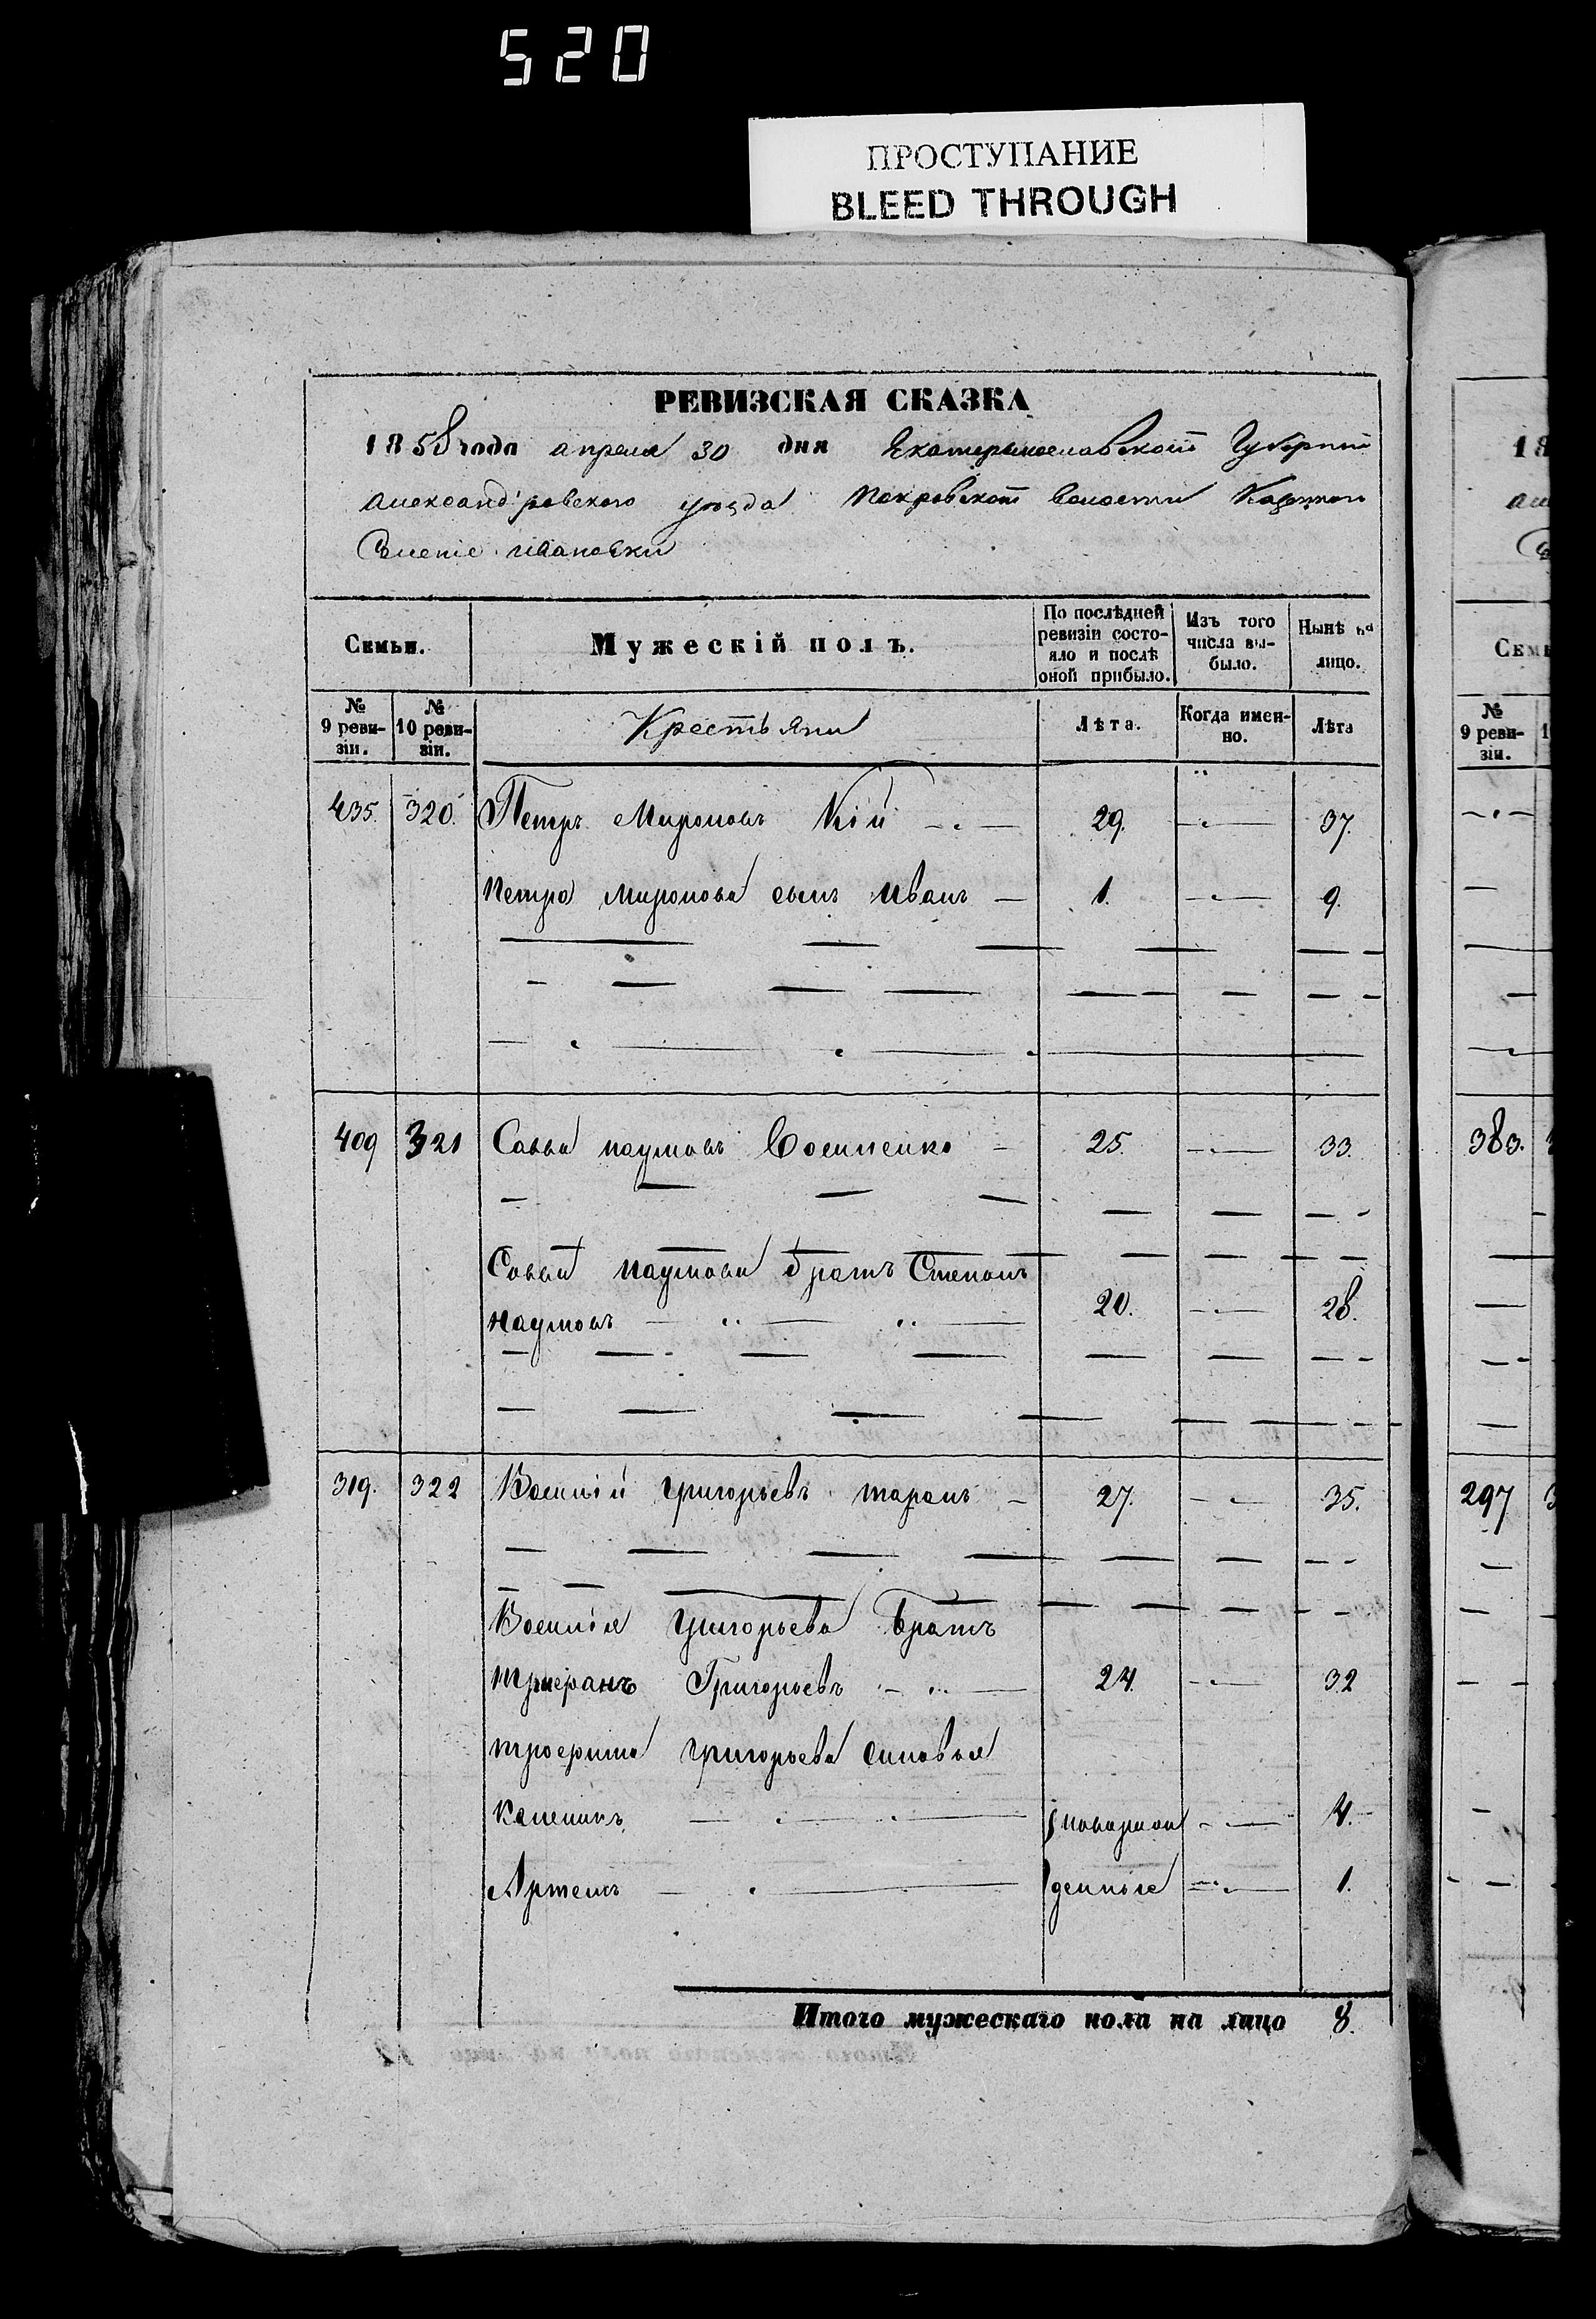 520
ПРОСТУПАНИЕ
BLEED THROUGH
РЕВИЗСКАЯ СКАЗКА
1858 года апреля 30 дня Екатеринославской Губернии
Александровского уезда Покровской волости Казенного
Селение Ивановки
Семьи. Мужескій полъ. По послѣдней ревизіи состояло и послѣ оной прибыло. Изъ того числа выбыло. Нынѣ на лицо.
№ 9 ревизіи. № 10 ревизіи. Крестьяни Лѣта. Когда именно. Лѣта
435. 320. Петръ Мироновъ Кій 29. 37.
Петра Миронова сынъ Иванъ 1. 9.
409 321 Савва Наумовъ 25. 33.
Саввы Наумова братъ Степанъ
Наумовъ 20. 28.
319. 322 Василій Григорьевъ Таранъ 27. 35.
Василія Григорьева Братъ
Григорьевъ 24. 32
Григорьева синовья
Каленикъ 4.
Артемъ 1.
Итого мужескаго пола на лицо 8.
18
Семь
№ 9 ревизіи.
383.
297